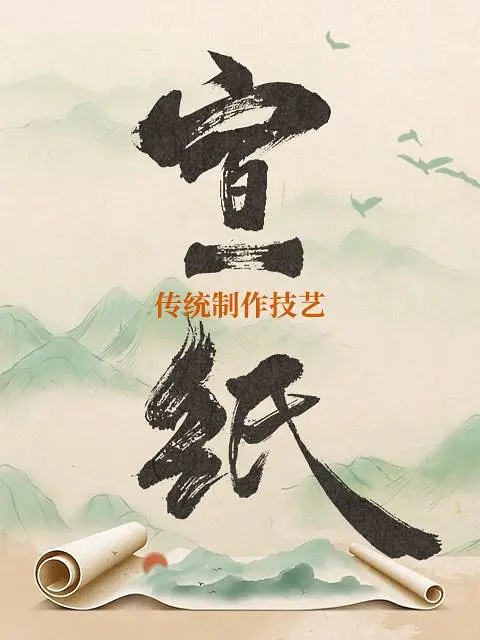 宣
传统制作技艺
纸